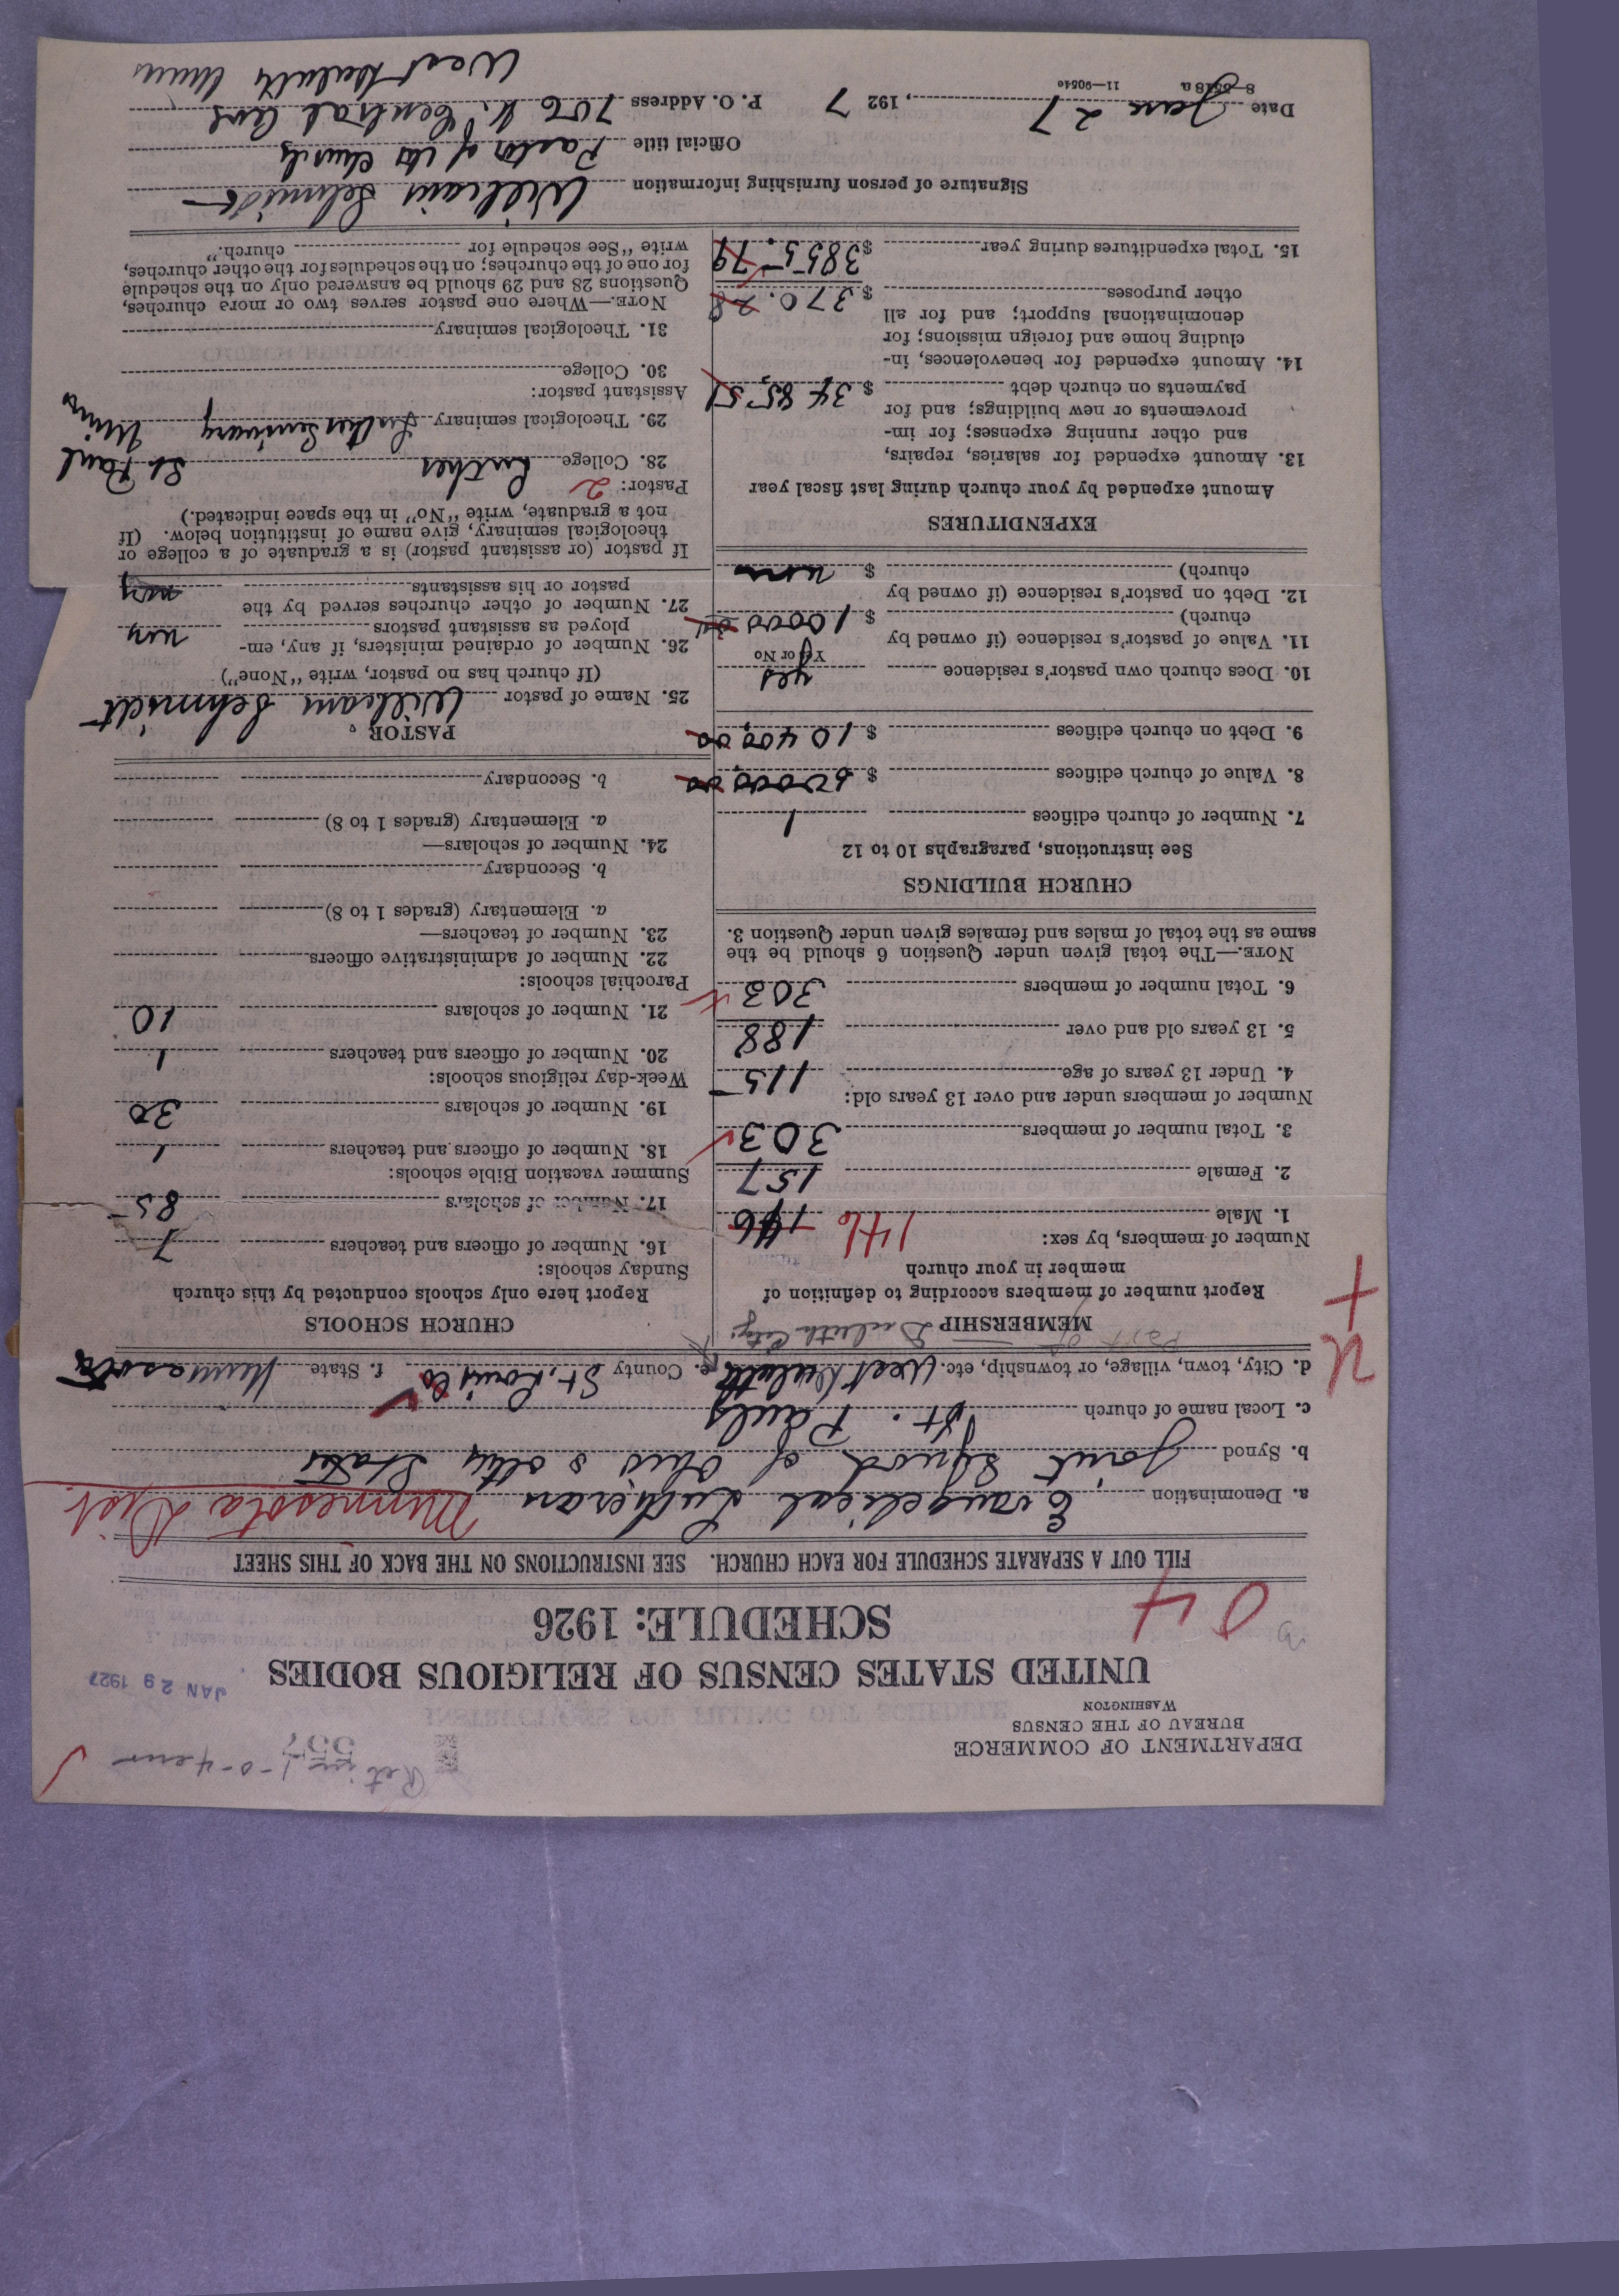 DEPARTMENT OF COMMERCE
BUREAU OF THE CENSUS
WASHINGTON
557
JAN 29 1927
UNITED STATES CENSUS OF RELIGIOUS BODIES
SCHEDULE: 1926
04
FILL OUT A SEPARATE SCHEDULE FOR EACH CHURCH. SEE INSTRUCTIONS ON THE BACK OF THIS SHEET
a. Denomination Evangelical Lutheran Minnesota Dist.
b. Synod Joint Synod of Ohio & other States
c. Local name of church St. Pauls
d. City, town, village, or township, etc. West Duluth e. County St. Louis Co f. State Minnesota
Part of Duluth City
MEMBERSHIP
Report number of members according to definition of
member in your church
Number of members, by sex:
1. Male 146 146
2. Female 157
3. Total number of members 303
Number of members under and over 13 years old:
4. Under 13 years of age 115
5. 13 years old and over 188
6. Total number of members 303
NOTE.—The total given under Question 6 should be the
same as the total of males and females given under Question 3.
CHURCH BUILDINGS
See instructions, paragraphs 10 to 12
7. Number of church edifices 1
8. Value of church edifices $ 60000.00
9. Debt on church edifices $ 10400.00
10. Does church own pastor's residence yes
Yes or No
11. Value of pastor's residence (if owned by
church) $ 10000.00
12. Debt on pastor's residence (if owned by
church) $ none
EXPENDITURES
Amount expended by your church during last fiscal year
13. Amount expended for salaries, repairs,
and other running expenses; for im-
provements or new buildings; and for
payments on church debt $ 3485.51
14. Amount expended for benevolences, in-
cluding home and foreign missions; for
denominational support; and for all
other purposes $ 370.28
15. Total expenditures during year $ 3855.79
CHURCH SCHOOLS
Report here only schools conducted by this church
Sunday schools:
16. Number of officers and teachers 7
17. Number of scholars 85
Summer vacation Bible schools:
18. Number of officers and teachers 1
19. Number of scholars 30
Week-day religious schools:
20. Number of officers and teachers 1
21. Number of scholars 10
Parochial schools:
22. Number of administrative officers
23. Number of teachers—
a. Elementary (grades 1 to 8)
b. Secondary
24. Number of scholars—
a. Elementary (grades 1 to 8)
b. Secondary
PASTOR
25. Name of pastor William Schmidt
(If church has no pastor, write "None")
26. Number of ordained ministers, if any, em-
ployed as assistant pastors
27. Number of other churches served by the
pastor or his assistants
If pastor (or assistant pastor) is a graduate of a college or
theological seminary, give name of institution below. (If
not a graduate, write "No" in the space indicated.)
Pastor: 2
28. College Luther St. Paul
29. Theological seminary Luther Seminary Minn
Assistant pastor:
30. College
31. Theological seminary
NOTE.—Where one pastor serves two or more churches,
Questions 28 and 29 should be answered only on the schedule
for one of the churches; on the schedules for the other churches,
write "See schedule for church."
Signature of person furnishing information William Schmidt
Official title Pastor of the church
Date Jan 27, 1927 P. O. Address 706 N. Central Ave
8—5518a 11—9054e
West Duluth Minn